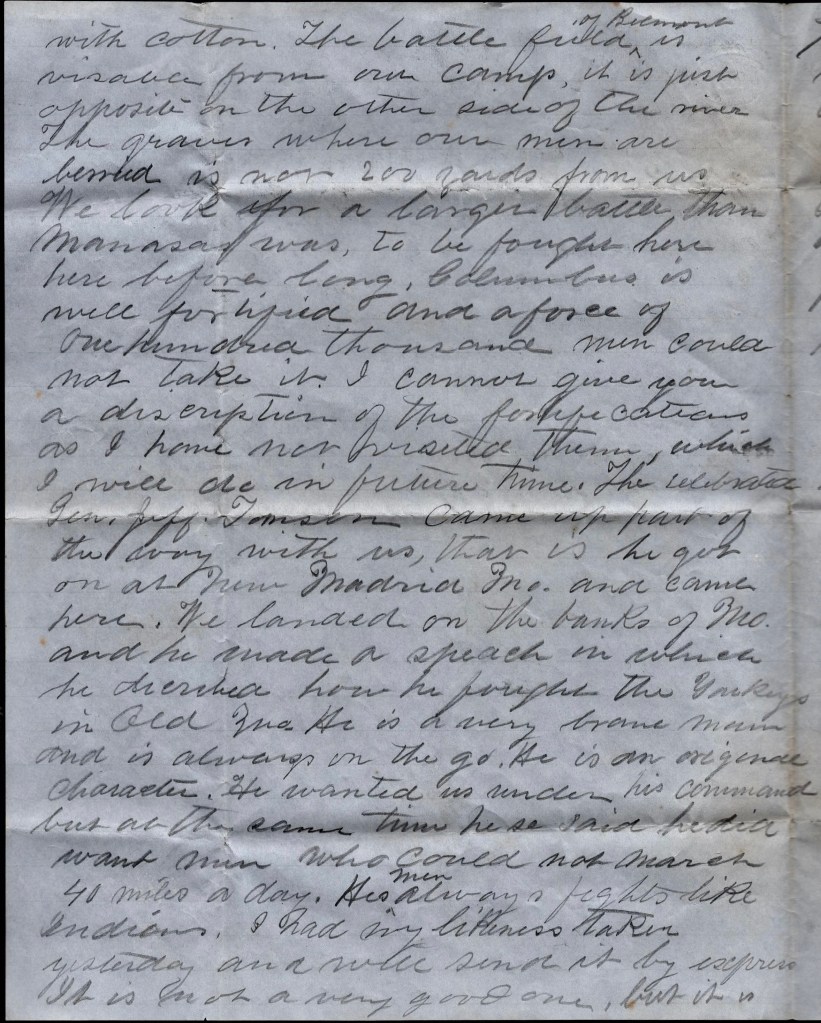 with cotton. The battle field ^of Belmont is
visable from our camp, it is just
opposite on the other side of the river
The graves where our men are
berried is not 200 yards from us
We look for a larger battle than
Manasas was, to be fought here
here before long, Columbus is
well fortified and a force of
One hundred thousand men could
not take it. I cannot give you
a discription of the fortifications
as I have not viseted them, which
I will do in future time. The celebrated
Gen. Jeff. Tomson came up part of
the way with us, that is he got
on at New Madrid Mo. and came
here. We landed on the banks of Mo.
and he made a speach in which
he discribed how he fought the Yankeys
in Old Mo. He is a very brave man
and is always on the go. He is an original
Character. He wanted us under his command
but at the same time he se said he did
want men who could not march
40 miles a day. His ^men always fights like
Indians. I had my likeness taken
yesterday and will send it by express
It is not a very good one, but it is